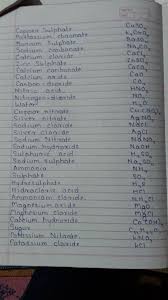 Copper Sulphate CuSO4
Potassium chromate K2CrO4
Barium Sulphate BaSO4
Sodium carbonate Na2CO3
Calcium cloride CaCl2
Zinc Sulphate ZnSO4
Calcium carbonate CaCO3
Calcium oxide CaO
Carbon dioxide CO2
Nitric acid HNO3
Nitrogen dioxide NO2
Water H2O
Copper nitrate
Silver nitrate AgNO3
Silver cloride AgCl
Sodium Nitrate NaNO3
Sodium cloride NaCl
Sodium hydroxide NaOH
Sulphuric acid H2SO4
Sodium Sulphate
Ammonia NH3
Sulphate
Hydrocloric acid HCl
Ammonium cloride
Magnesium oxide MgO
Magnesium cloride
Calcium hydroxide
Sugar
Potassium Nitrate KNO3
Potassium cloride KCl